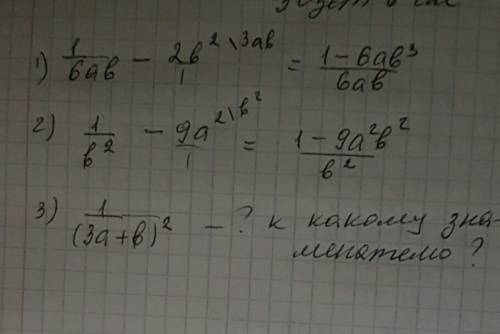 1) 1/6ab - 2b^2 \ 3ab / 1 = 1-6ab^3/6ab
2) 1/b^2 - 9a^2 \ b^2 / 1 = 1-9a^2b^2/b^2
3) 1/(3a+b)^2 - ? к какому зна-
менателю ?